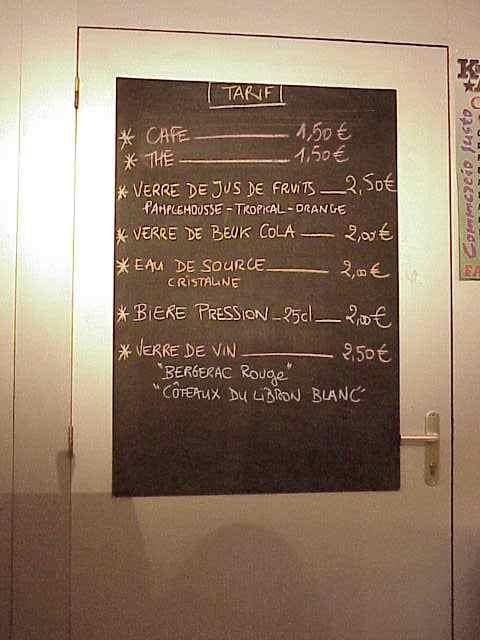 TARIF
* CAFE 1,50€
* THE 1,50€
* VERRE DE JUS DE FRUITS 2,50€
PAMPLEMOUSSE - TROPICAL - ORANGE
* VERRE DE BEUK COLA 2,00€
* EAU DE SOURCE 2,00€
CRISTALINE
* BIERE PRESSION - 25cl 2,00€
* VERRE DE VIN 2,50€
"BERGERAC ROUGE"
"CÔTEAUX DU LIBRON BLANC"
Commercio justo